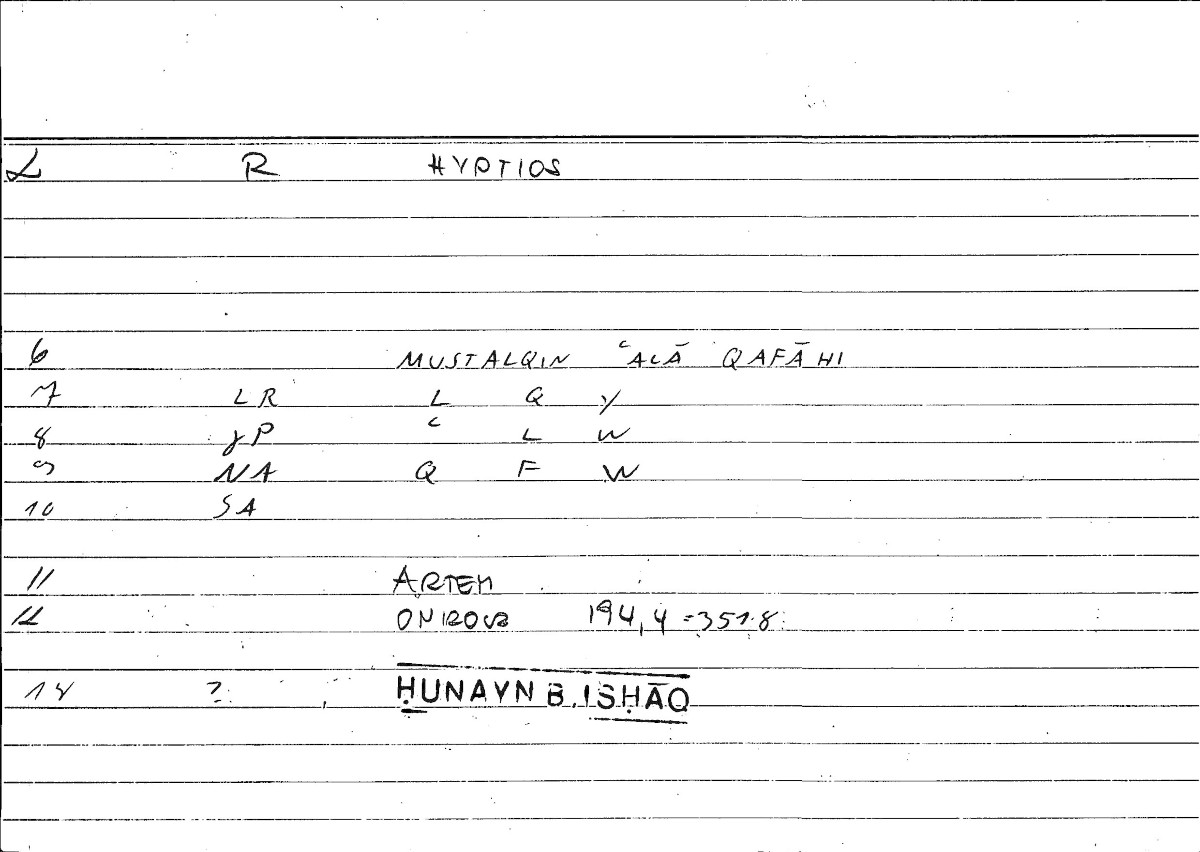 L R HYPTIOS
6 MUSTALQIN ʿALĀ QAFĀHI
7 LR L Q Y
8 γP ʿ L W
9 NA Q F W
10 SA
11 ARTEM
12 ONIROCR 194,4 = 351.8
14 ? ḤUNAYN B. ISḤĀQ